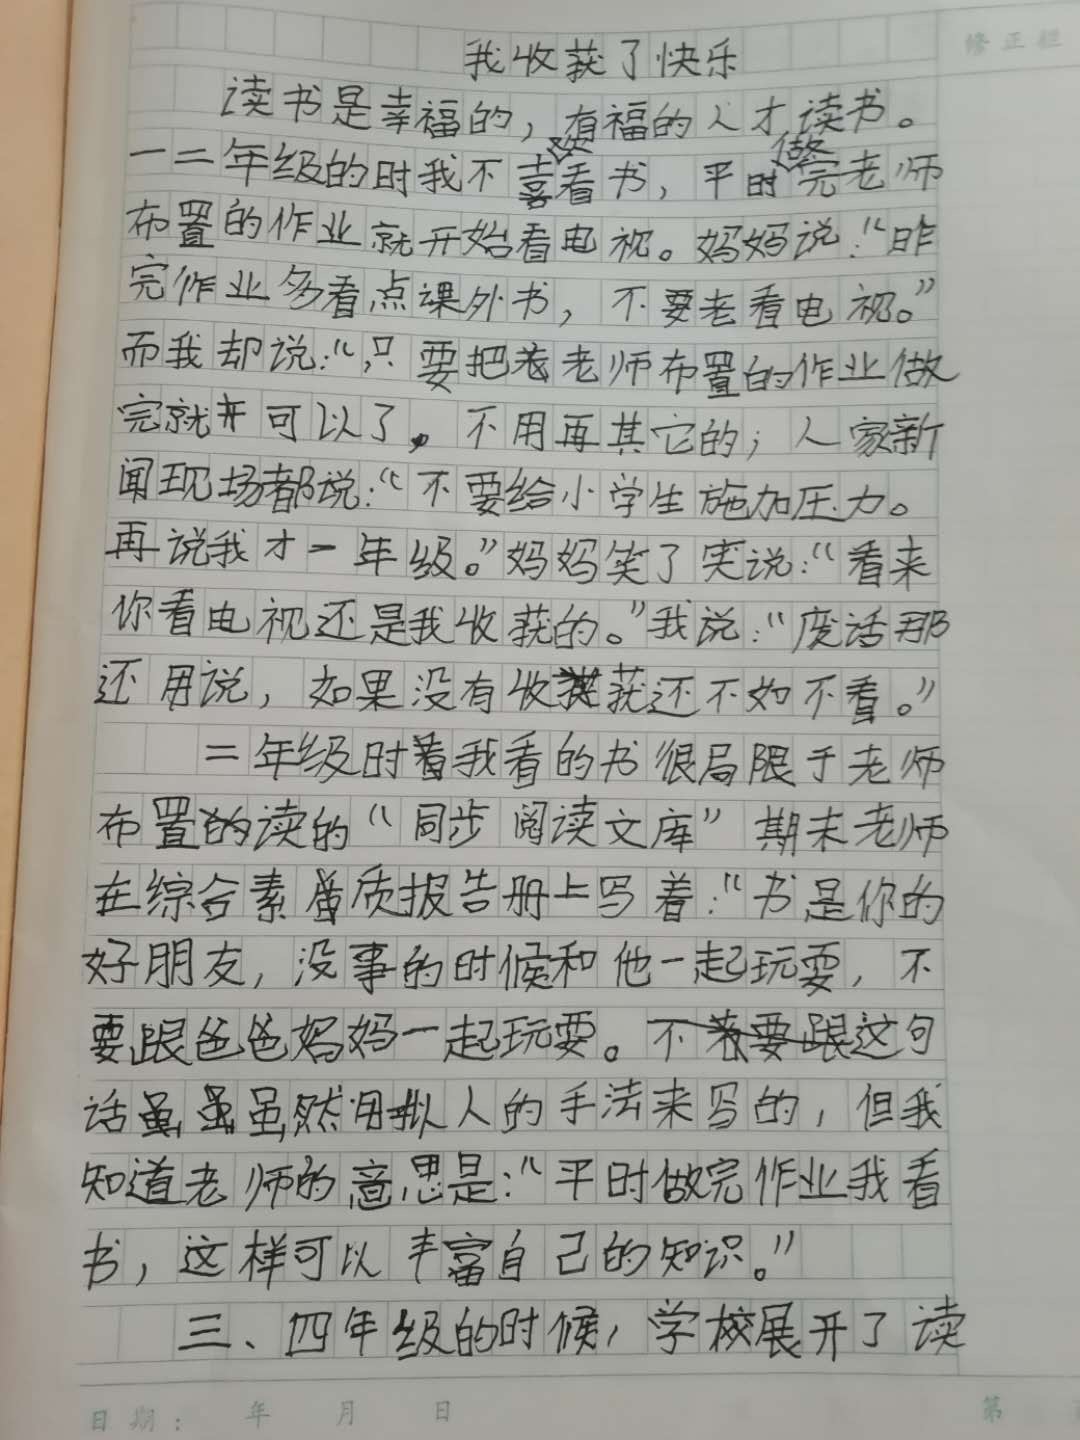 修正栏
我收获了快乐
读书是幸福的，有福的人才读书。
一二年级的时我不喜欢看书，平时做完老师
布置的作业就开始看电视。妈妈说：“昨
完作业多看点课外书，不要老看电视。”
而我却说：“只要把老师布置的作业做
完就可以了，不用再其它的；人家新
闻现场都说：“不要给小学生施加压力。
再说我才一年级。”妈妈笑了笑说：“看来
你看电视还是我收获的。”我说：“废话那
还用说，如果没有收获还不如不看。”
二年级时我看的书很局限于老师
布置读的“同步阅读文库”期末老师
在综合素质报告册上写着：“书是你的
好朋友，没事的时候和他一起玩耍，不
要跟爸爸妈妈一起玩耍。这句
话虽然用拟人的手法来写的，但我
知道老师的意思是：“平时做完作业我看
书，这样可以丰富自己的知识。”
三、四年级的时候，学校展开了读
日期： 年 月 日 第